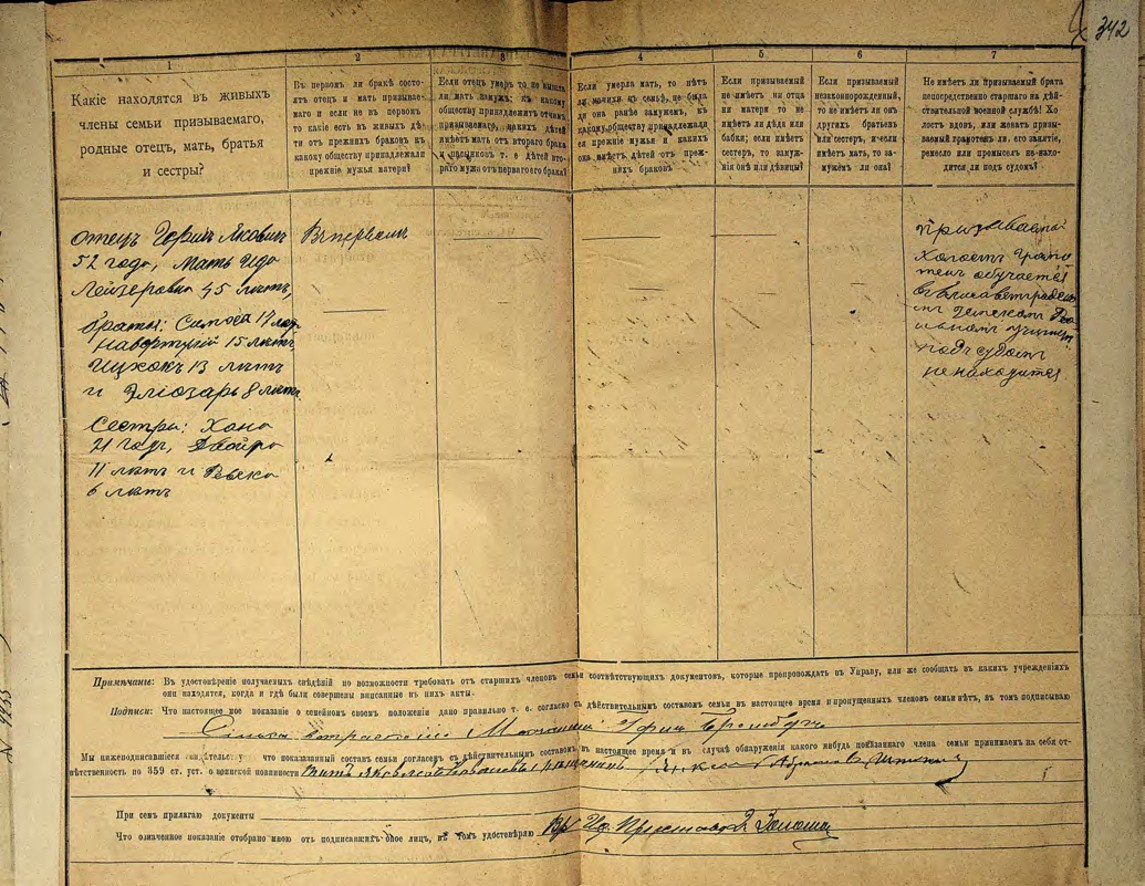 342
1
2
3
4
5
6
7
Какіе находятся въ живыхъ
члены семьи призываемаго,
родные отецъ, мать, братья
и сестры?
Въ первомъ ли бракѣ состо-
ятъ отецъ и мать призывае-
маго и если не въ первомъ
то какіе есть въ живыхъ дѣ-
ти отъ прежнихъ браковъ къ
какому обществу принадлежали
прежніе мужья матери?
Если отецъ умеръ то не вышла
ли мать замужъ: къ какому
обществу принадлежитъ отчимъ
призываемаго, какихъ дѣтей
имѣетъ мать отъ втораго брака
и пасынковъ т. е дѣтей вто-
раго мужа отъ перваго его брака?
Если умерла мать, то нѣтъ
ли мачихи въ семьѣ, не была
она ранѣе замужемъ, къ
какому обществу принадлежали
ея прежніе мужья и какихъ
она имѣетъ дѣтей отъ преж-
нихъ браковъ
Если призываемый
не имѣетъ ни отца
ни матери то не
имѣетъ ли дѣда или
бабки; если имѣетъ
сестеръ, то замуж-
нія онѣ или дѣвицы?
Если призываемый
незаконнорожденный,
то не имѣетъ ли онъ
другихъ братьевъ
или сестеръ, и если
имѣетъ мать, то за-
мужемъ ли она?
Не имѣетъ ли призываемый брата
непосредственно старшаго на дѣй-
ствительной военной службѣ? Хо
лостъ вдовъ, или женатъ призы-
ваемый грамотенъ ли, его занятіе,
ремесло или промыселъ не нахо-
дится ли подъ судомъ?
отецъ Герш Яковичъ
52 года, Мать Ида
Лейзеровна 45 лѣтъ,
братья: 17 лѣтъ
15 лѣтъ,
Ицхокъ 13 лѣтъ
и Эліозаръ 8 лѣтъ.
Сестры: Хана
21 годъ, Двойра
11 лѣтъ и Ревека
6 лѣтъ
Въ первомъ
Призываемый
холостъ грамо
тенъ обучается
въ Елисаветградско
мъ Земскомъ Ре
альномъ училищѣ
подъ судомъ
не находится
Примѣчаніе: Въ удостовѣреніе получаемыхъ свѣдѣній по возможности требовать отъ старшихъ членовъ семьи соотвѣтствующихъ документовъ, которые препровождать въ Управу, или же сообщать въ какихъ учрежденіяхъ
они находятся, когда и гдѣ были совершены вписанные въ нихъ акты.
Подписи: Что настоящее мое показаніе о семейномъ своемъ положеніи дано правильно т. е. согласно съ дѣйствительнымъ составомъ семьи въ настоящее время и пропущенныхъ членовъ семьи нѣтъ, въ томъ подписываю
Мы нижеподписавшіеся что показанный составъ семьи согласенъ съ дѣйствительнымъ составомъ въ настоящее время и въ случаѣ обнаруженія какого нибудь показаннаго члена семьи принимаемъ на себя от-
вѣтственность по 359 ст. уст. о воинской повинности
При семъ прилагаю документы
Что означенное показаніе отобрано мною отъ подписавшихъ оное лицъ, въ томъ удостовѣряю